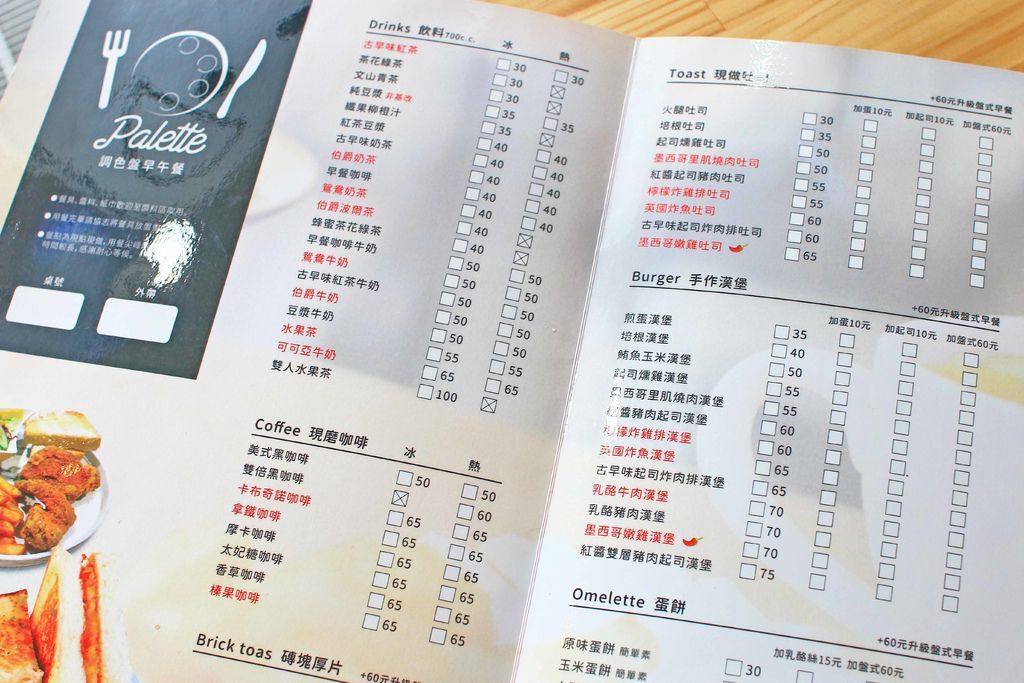 Palette
調色盤早午餐
桌號 外帶
Drinks 飲料700c.c. 冰 熱
古早味紅茶 30 30
茶花綠茶 30
文山青茶 30
純豆漿 非基改 35 35
纖果柳橙汁 35
紅茶豆漿 40 40
古早味奶茶 40 40
伯爵奶茶 40 40
早餐咖啡 40 40
鴛鴦奶茶 40 40
伯爵波爾茶 40
蜂蜜茶花綠茶 40
早餐咖啡牛奶 50 50
鴛鴦牛奶 50 50
古早味紅茶牛奶 50 50
伯爵牛奶 50 50
豆漿牛奶 50 50
水果茶 55 55
可可亞牛奶 65 65
雙人水果茶 100
Coffee 現磨咖啡 冰 熱
美式黑咖啡 50 50
雙倍黑咖啡 60
卡布奇諾咖啡 65 65
拿鐵咖啡 65 65
摩卡咖啡 65 65
太妃糖咖啡 65 65
香草咖啡 65 65
榛果咖啡 65 65
Brick toas 磚塊厚片
+60元升級
Toast 現做吐司
+60元升級盤式早餐
加蛋10元 加起司10元 加盤式60元
火腿吐司 30
培根吐司 35
起司燻雞吐司 50
墨西哥里肌燒肉吐司 50
紅醬起司豬肉吐司 55
檸檬炸雞排吐司 55
英國炸魚吐司 60
古早味起司炸肉排吐司 60
墨西哥嫩雞吐司 65
Burger 手作漢堡
+60元升級盤式早餐
加蛋10元 加起司10元 加盤式60元
煎蛋漢堡 35
培根漢堡 40
鮪魚玉米漢堡 50
起司燻雞漢堡 55
墨西哥里肌燒肉漢堡 55
紅醬豬肉起司漢堡 60
檸檬炸雞排漢堡 60
英國炸魚漢堡 65
古早味起司炸肉排漢堡 65
乳酪牛肉漢堡 70
乳酪豬肉漢堡 70
墨西哥嫩雞漢堡 70
紅醬雙層豬肉起司漢堡 75
Omelette 蛋餅
+60元升級盤式早餐
加乳酪絲15元 加盤式60元
原味蛋餅 簡單素 30
玉米蛋餅 簡單素